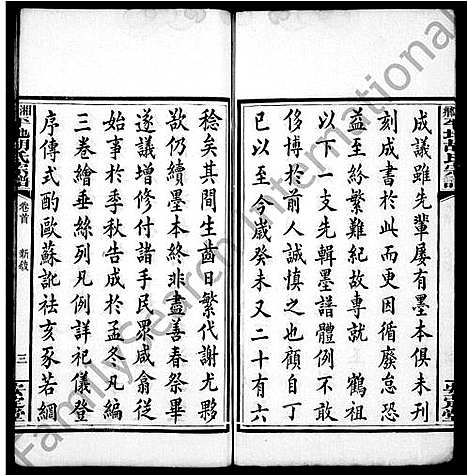 成議雖先輩屢有墨本俱未刊
刻成書於此而更因循廢怠恐
益至紛繁難紀故專就 鶴祖
以下一支先輯墨譜體例不敢
侈博於前人誠慎之也丁前丁
巳以至今歲癸未又二十有六
稔矣其間生齒日繁代謝尤夥
欲仍續墨本終非盡善春祭畢
遂議增修付諸手民眾咸僉從
始事於季秋告成於孟冬凡編
三卷繪垂絲列凡例詳祀儀登
序傳式酌歐蘇訛祛亥豕若綱
胡氏宗譜
卷首
新敘
三
FamilySearch International